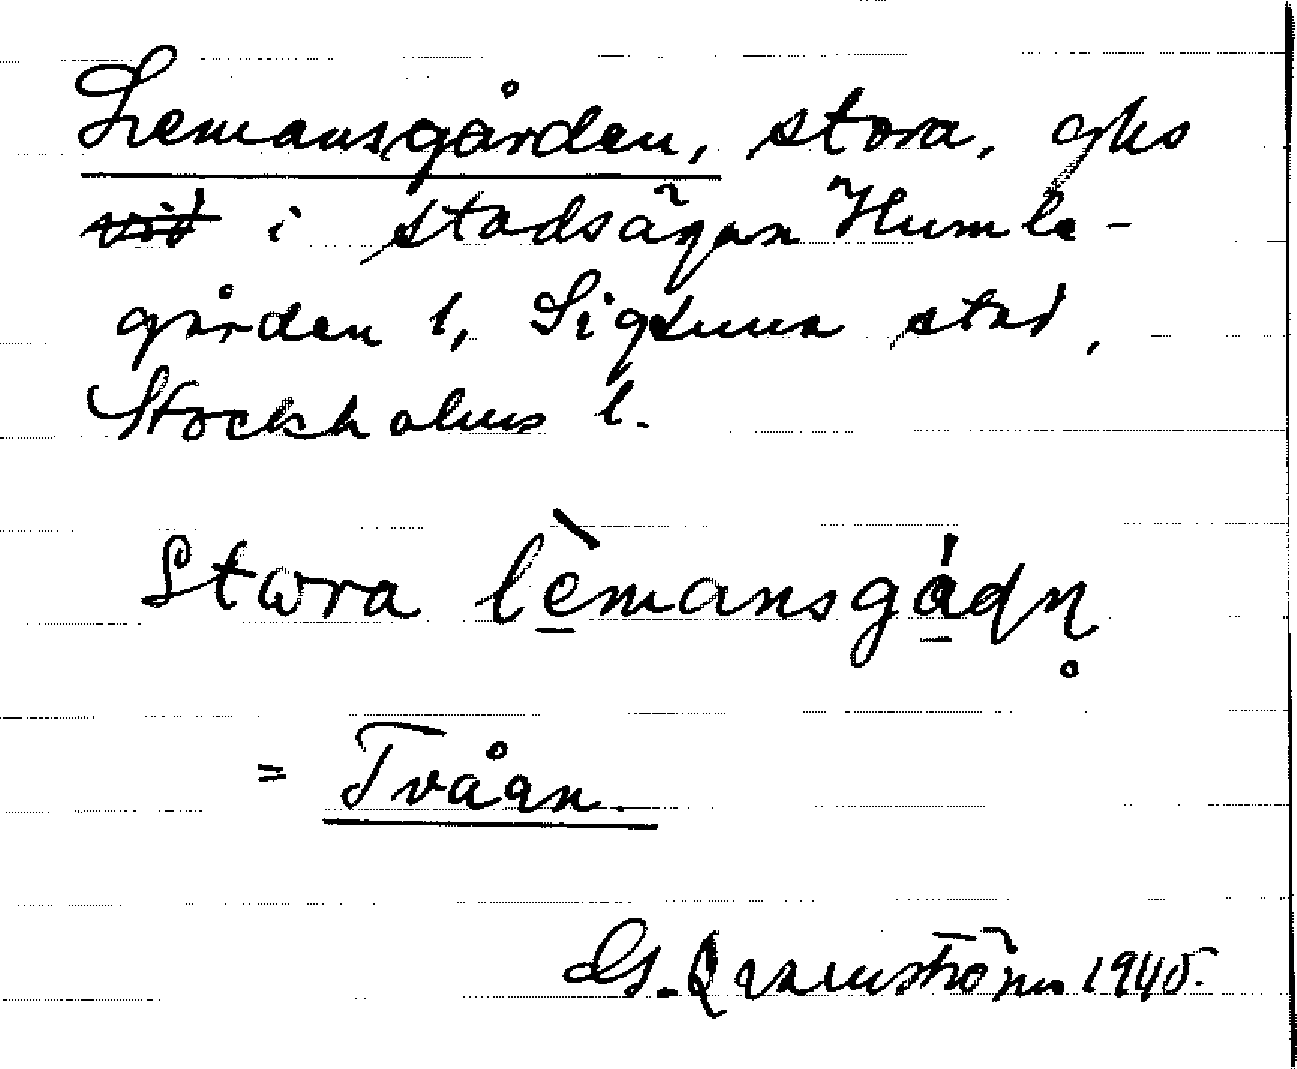 Lemansgården, stora, ghs
vid i stadsägan Humle-
gården 1, Sigtuna stad,
Stockholms l.
Stωra lèmansgádn̥
= Tvåan.
G. Qvarnström 1940.